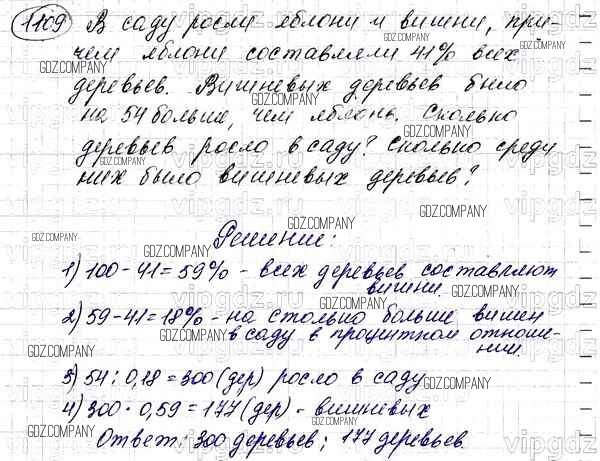 1109 В саду росли яблони и вишни, при-
чем яблони составляли 41% всех
деревьев. Вишневых деревьев было
на 54 больше, чем яблонь. Сколько
деревьев росло в саду? Сколько среди
них было вишневых деревьев?
Решение:
1) 100 - 41 = 59% - всех деревьев составляют
вишни.
2) 59 - 41 = 18% - на столько больше вишен
в саду в процентном отноше-
нии.
3) 54 : 0,18 = 300 (дер) росло в саду
4) 300 · 0,59 = 177 (дер) - вишневых
Ответ: 300 деревьев; 177 деревьев.